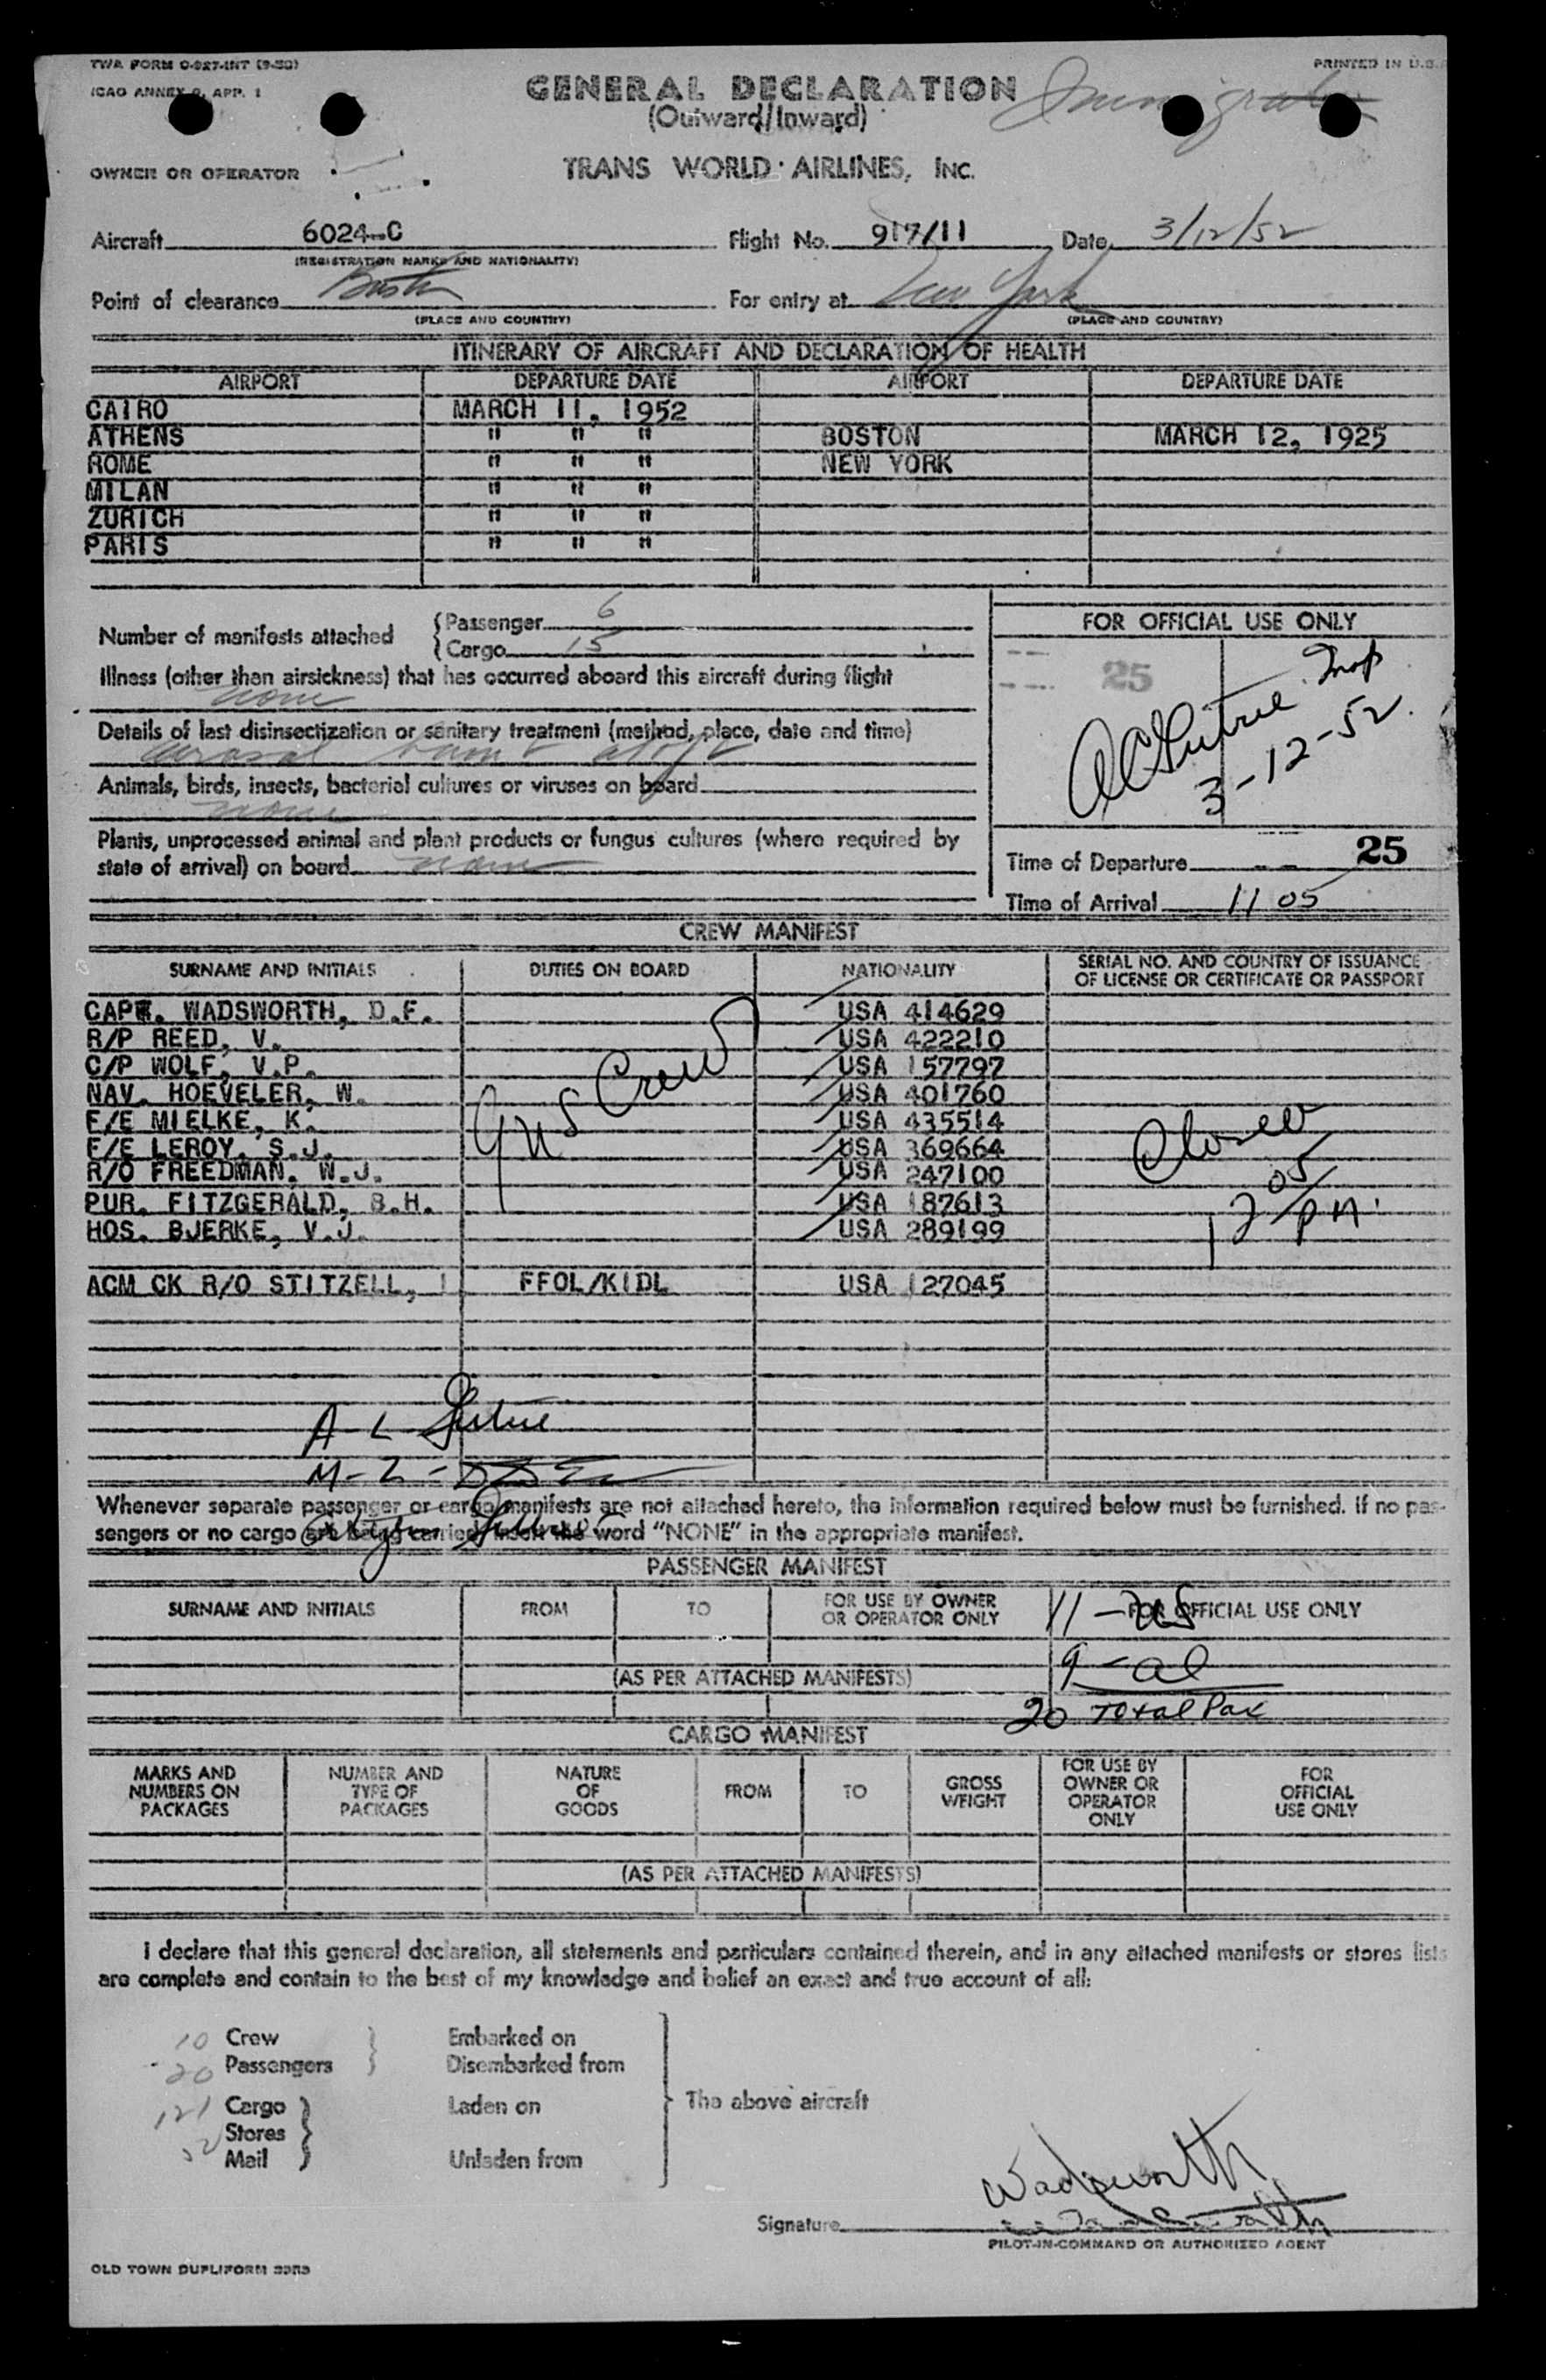 TWA FORM O-927-INT (9-50)
PRINTED IN U.S.
ICAO ANNEX 9, APP. 1
GENERAL DECLARATION
(Outward/Inward)
OWNER OR OPERATOR
TRANS WORLD AIRLINES, INC.
Aircraft 6024-C Flight No. 917/11 Date 3/12/52
(REGISTRATION MARKS AND NATIONALITY)
Point of clearance Boston For entry at New York
(PLACE AND COUNTRY) (PLACE AND COUNTRY)
ITINERARY OF AIRCRAFT AND DECLARATION OF HEALTH
AIRPORT DEPARTURE DATE AIRPORT DEPARTURE DATE
CAIRO MARCH 11, 1952
ATHENS " " " BOSTON MARCH 12, 1925
ROME " " " NEW YORK
MILAN " " "
ZURICH " " "
PARIS " " "
Number of manifests attached {Passenger 6
{Cargo 15
FOR OFFICIAL USE ONLY
25
Insp
3-12-52
Illness (other than airsickness) that has occurred aboard this aircraft during flight
none
Details of last disinsectization or sanitary treatment (method, place, date and time)
Animals, birds, insects, bacterial cultures or viruses on board
none
Plants, unprocessed animal and plant products or fungus cultures (where required by
state of arrival) on board none
Time of Departure -- 25
Time of Arrival 11 05
CREW MANIFEST
SURNAME AND INITIALS DUTIES ON BOARD NATIONALITY SERIAL NO. AND COUNTRY OF ISSUANCE
OF LICENSE OR CERTIFICATE OR PASSPORT
CAPT. WADSWORTH, D.F. USA 414629
R/P REED, V. USA 422210
C/P WOLF, V.P. USA 157797
NAV. HOEVELER, W. USA 401760
F/E MIELKE, K. USA 435514
F/E LEROY, S.J. USA 369664
R/O FREEDMAN, W.J. USA 247100
PUR. FITZGERALD, B.H. USA 187613
HOS. BJERKE, V.J. USA 289199
9 US Crew
Closed
12 05 PM
ACM CK R/O STITZELL, I FFOL/KIDL USA 127045
A-L
M-L-
Whenever separate passenger or cargo manifests are not attached hereto, the information required below must be furnished. If no pas-
sengers or no cargo are being carried insert the word "NONE" in the appropriate manifest.
PASSENGER MANIFEST
SURNAME AND INITIALS FROM TO FOR USE BY OWNER
OR OPERATOR ONLY
FOR OFFICIAL USE ONLY
11-US
9-al
(AS PER ATTACHED MANIFESTS)
20 Total Pax
CARGO MANIFEST
MARKS AND
NUMBERS ON
PACKAGES
NUMBER AND
TYPE OF
PACKAGES
NATURE
OF
GOODS
FROM
TO
GROSS
WEIGHT
FOR USE BY
OWNER OR
OPERATOR
ONLY
FOR
OFFICIAL
USE ONLY
(AS PER ATTACHED MANIFESTS)
I declare that this general declaration, all statements and particulars contained therein, and in any attached manifests or stores lists
are complete and contain to the best of my knowledge and belief an exact and true account of all:
10 Crew } Embarked on
20 Passengers } Disembarked from
121 Cargo } Laden on
Stores
Mail } Unladen from
The above aircraft
Wadsworth
Signature
PILOT-IN-COMMAND OR AUTHORIZED AGENT
OLD TOWN DUPLIFORM